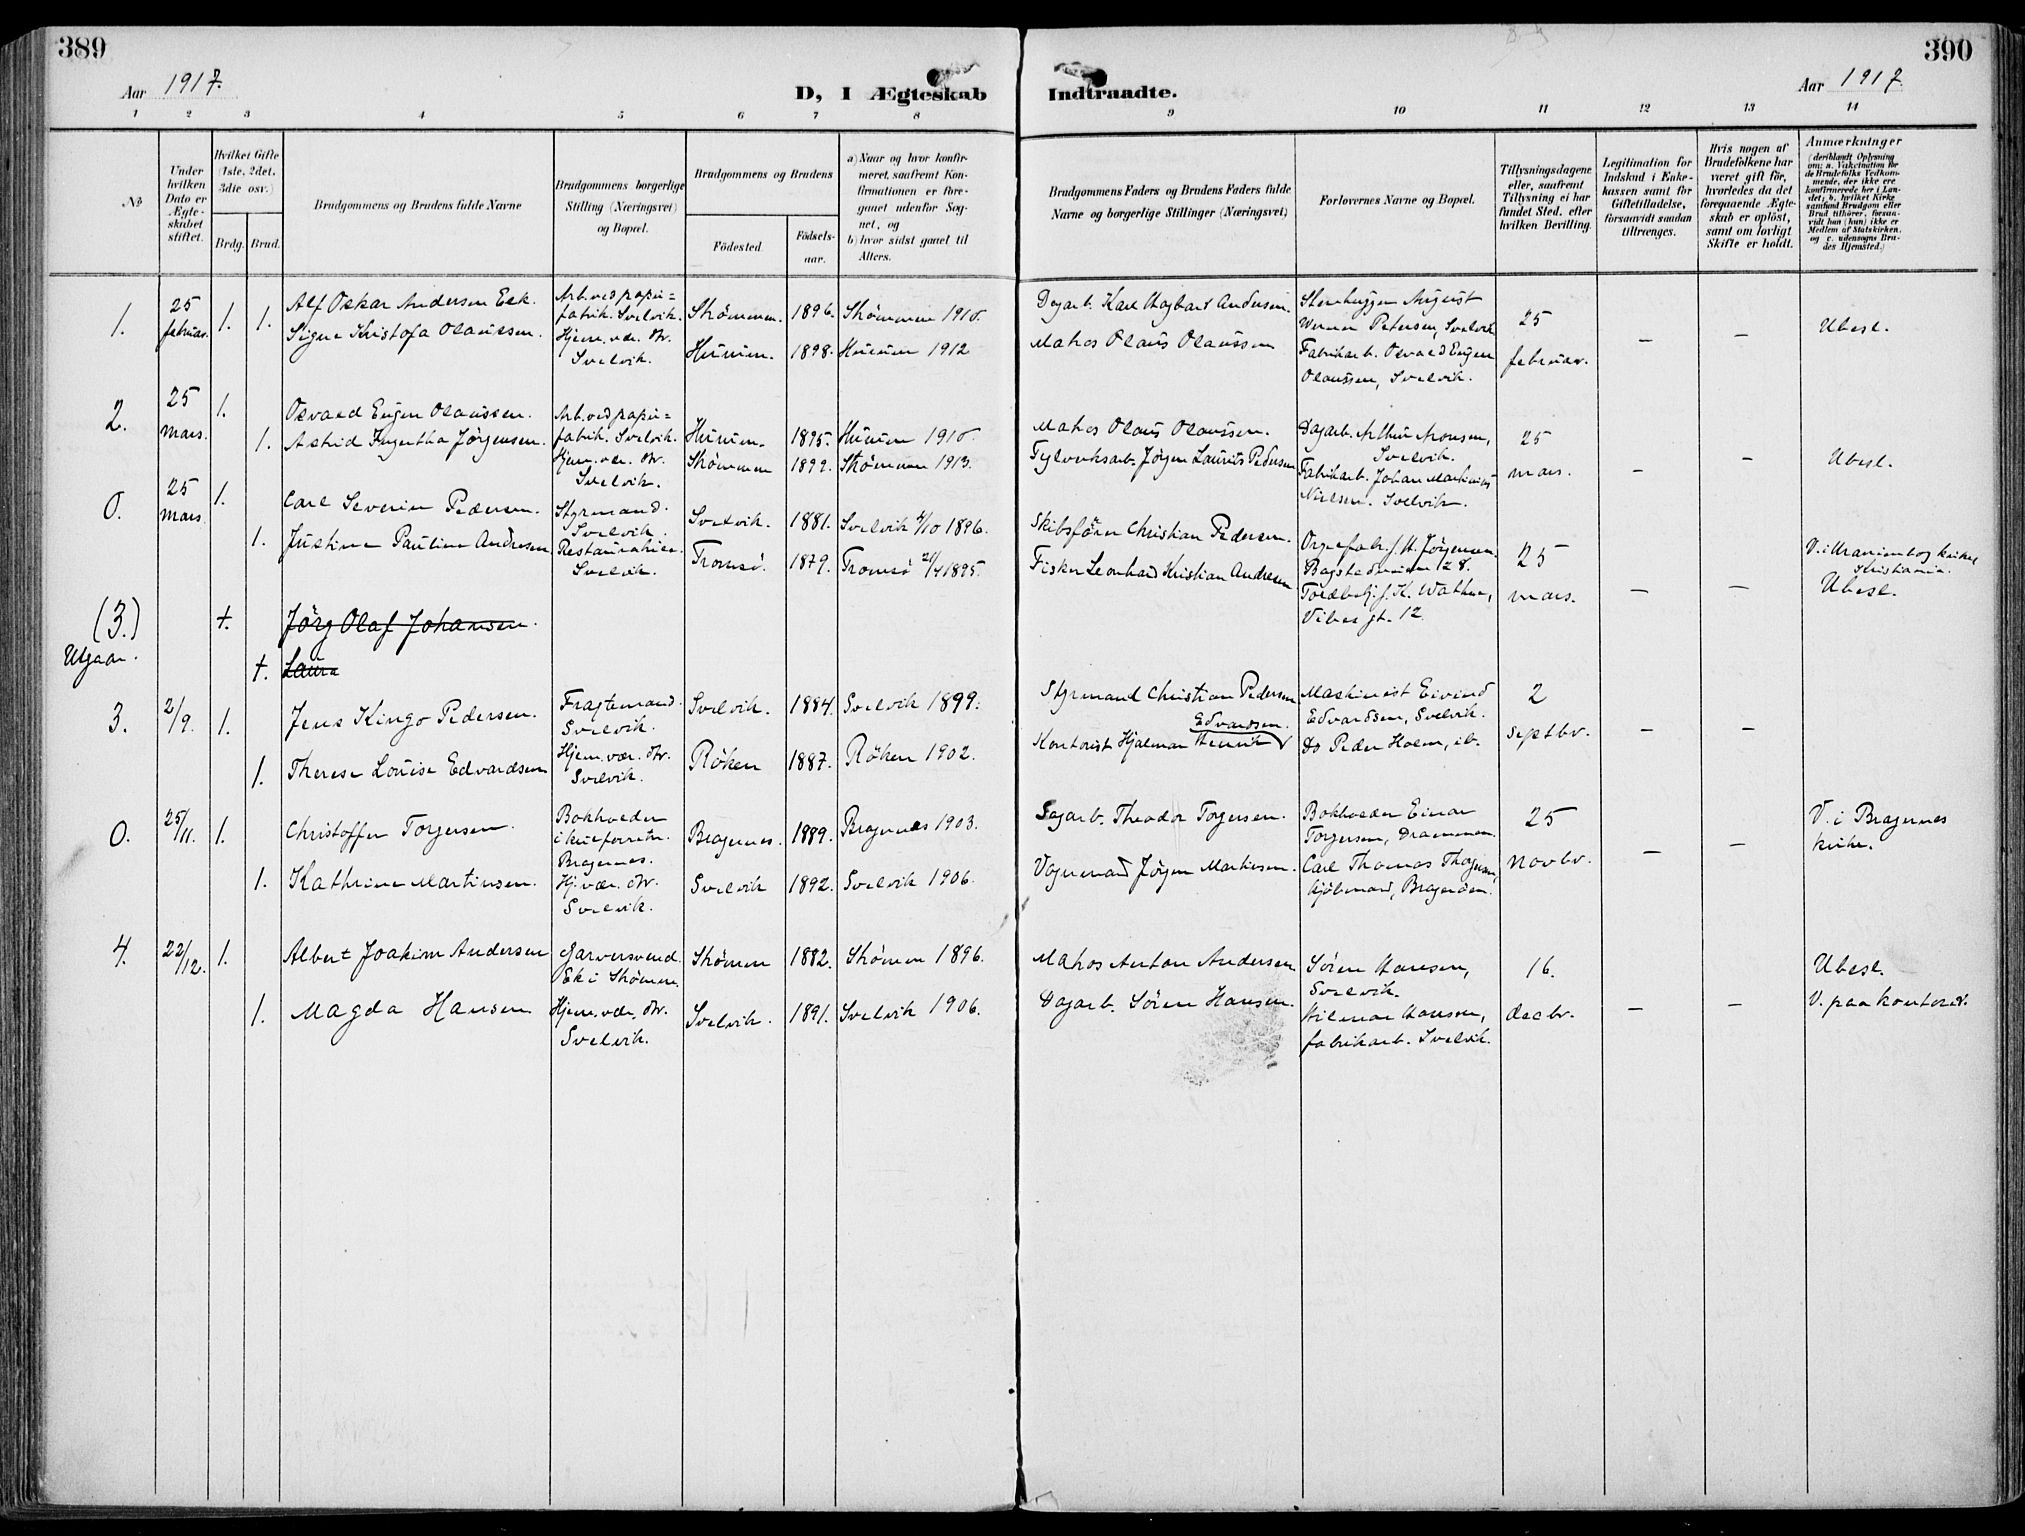 389
Aar 1917.
D, I Ægteskab Indtraadte.
Aar 1917.
390
1 2 3 4 5 6 7 8 9 10 11 12 13 14
No
Under
hvilken
Dato er
Ægte-
skabet
stiftet.
Hvilket Gifte
(1ste, 2det,
3die osv.)
Brdg. Brud.
Brudgommens og Brudens fulde Navne
Brudgommens borgerlige
Stilling (Næringsvei)
og Bopæl.
Brudgommens og Brudens
Fødested.
Fødsels-
aar.
a) Naar og hvor konfir-
meret, saafremt Kon-
firmationen er fore-
gaaet udenfor Sog-
net, og
b) hvor sidst gaaet til
Alters.
Brudgommens Faders og Brudens Faders fulde
Navne og borgerlige Stillinger (Næringsvei)
Forlovernes Navne og Bopæl.
Tillysningsdagene
eller, saafremt
Tillysning ei har
fundet Sted, efter
hvilken Bevilling.
Legitimation for
Indskud i Enke-
kassen samt for
Giftetilladelse,
forsaavidt saadan
tiltrænges.
Hvis nogen af
Brudefolkene har
været gift før,
hvorledes da det
foregaaende Ægte-
skab er opløst,
samt om lovligt
Skifte er holdt.
Anmærkninger
(deriblandt Oplysning
om: a. Vakcination for
de Brudefolks Vedkom-
mende, der ikke ere
konfirmerede her i Lan-
det; b. hvilket Kirke-
samfund Brudgom eller
Brud tilhører, forsaa-
vidt han (hun) ikke er
Medlem af Statskirken,
og c. udensogns Bru-
des Hjemsted.)
1.
25
februar.
1. 1.
Alf Oskar Andersen Eek.
Signe Kristofa Olaussen.
Arb. ved papir=
fabrik. Svelvik.
Hjem. vær. dtr.
Svelvik.
Strømmen. 1896. Strømmen 1910.
Hurum. 1898. Hurum 1912
Dagarb. Karl Hagbart Andersen.
Matros Olaus Olaussen
Stenhugger August
Werner Petersen, Svelvik
Fabrikarb. Osvald Eugen
Olaussen, Svelvik.
25
februar.
– –
Ubesl.
2.
25
mars.
1.
1.
Osvald Eugen Olaussen.
Astrid Ingertha Jørgensen.
Arb. ved papir=
fabrik. Svelvik.
Hjem. vær. dtr.
Svelvik.
Hurum. 1895. Hurum 1910.
Strømmen 1899. Strømmen 1913.
Matros Olaus Olaussen.
Teglverksarb. Jørgen Laurits Pedersen
Dagarb. Arthur Aronsen,
Svelvik.
Fabrikarb. Johan Martinius
Nielsen. Svelvik.
25
mars.
– –
Ubesl.
0.
25
mars
1.
1.
Carl Severin Pedersen.
Justine Pauline Andresen
Styrmand.
Svelvik.
Restauratrice.
Svelvik.
Svelvik. 1881. Svelvik 4/10 1896.
Tromsø. 1879. Tromsø 21/4 1895.
Skibsfører Christian Pedersen.
Fisker Leonhard Kristian Andresen
Orgelfabr. J. H. Jørgensen.
Bogstadveien 128.
Toldbetj. J. K. Wathne,
Vibes gt. 12.
25
mars.
– –
V. i Uranienborg kirke
Kristiania.
Ubesl.
(3.)
Utgaar.
+.
+.
Jörg Olaf Johansen.
Laura
3.
2/9.
1.
1.
Jens Kingo Pedersen.
Therese Louise Edvardsen
Fragtemand.
Svelvik.
Hjem. vær. dtr.
Svelvik.
Svelvik. 1884. Svelvik 1899.
Røken 1887. Røken 1902.
Styrmand Christian Pedersen
Edvardsen.
Kontorist Hjalmar Henrik
Maskinist Eivind
Edvardsen, Svelvik.
Do Peder Holm, ib.
2
septbr.
– –
0.
25/11.
1.
1.
Christoffer Torgersen.
Kathrine Martinsen.
Bokholder
Bragernes.
Hj. vær. dtr.
Svelvik.
Bragernes. 1889. Bragernes 1903.
Svelvik 1892. Svelvik 1906.
Sagarb. Theodor Torgersen.
Vognmand Jørgen Martinsen.
Bokholder Einar
Torgersen, Drammen.
Carl Thomas Thorgersen,
kjøbmand, Bragerøen.
25
novbr.
– –
V. i Bragernes
kirke.
4.
22/12.
1.
1.
Albert Joakim Andersen
Magda Hansen
Garversvend.
Ek i Strømm.
Hjem. vær. dtr.
Svelvik.
Strømm 1882. Strømm 1896.
Svelvik. 1891. Svelvik 1906.
Matros Anton Andersen
Dagarb. Søren Hansen.
Søren Hansen,
Svelvik.
Hilmar Hansen,
fabrikarb. Svelvik.
16.
decbr.
– –
Ubesl.
V. paa kontoret.